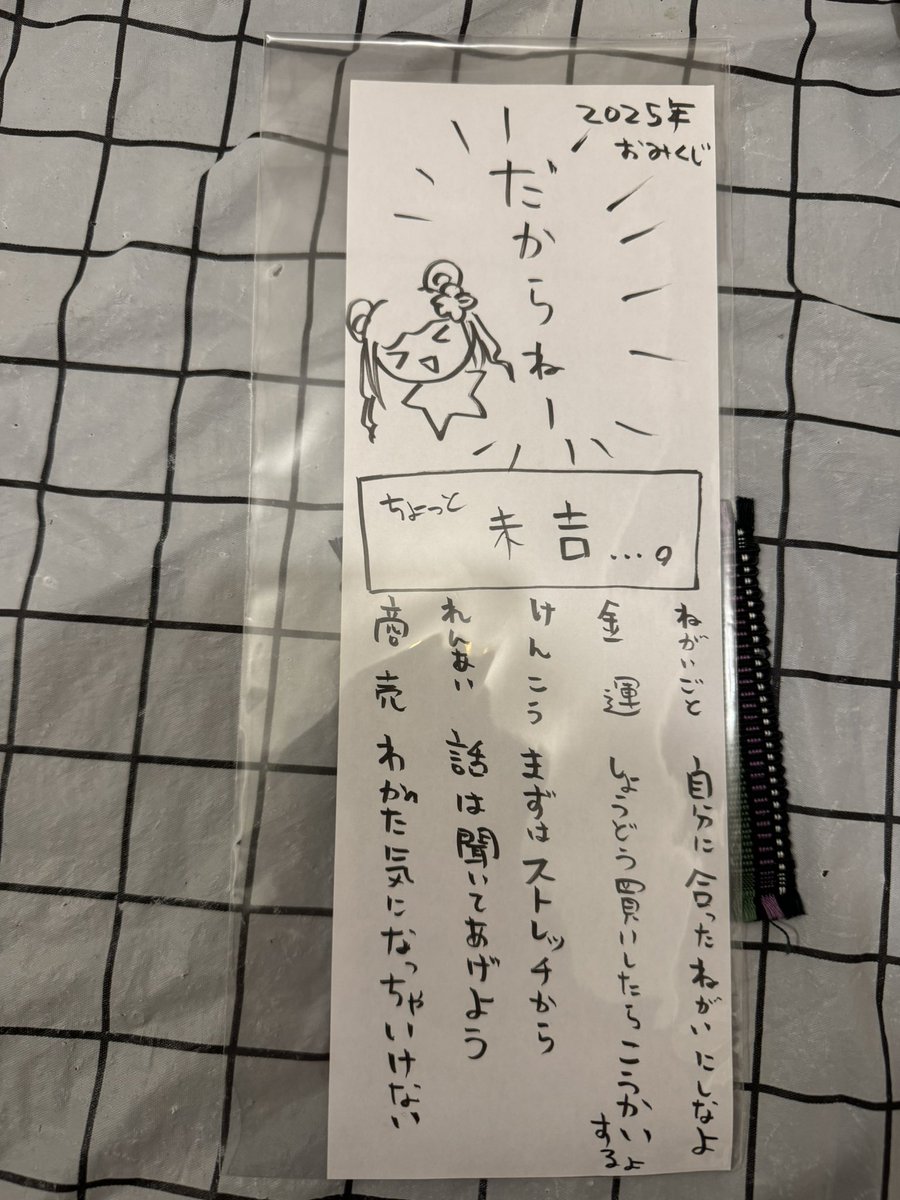 2025年
おみくじ
だからねー
ちょっと
末吉...。
ねがいごと 自分に合ったねがいにしなよ
金運 しょうどう買いしたらこうかいするよ
けんこう まずはストレッチから
れんあい 話は聞いてあげよう
商売 わかった気になっちゃいけない